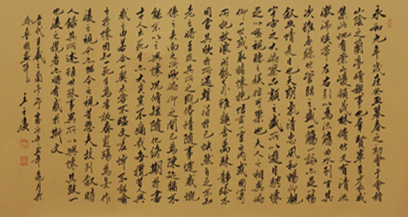 永和九年歲在癸丑暮春之初會于會稽
山陰之蘭亭脩禊事也群賢畢至少長咸
集此地有崇山峻領茂林脩竹又有清流
激湍映帶左右引以為流觴曲水列坐其
次雖無絲竹管弦之盛一觴一詠亦足以暢
敘幽情是日也天朗氣清惠風和暢仰觀
宇宙之大俯察品類之盛所以遊目騁懷
足以極視聽之娛信可樂也夫人之相與俯
仰一世或取諸懷抱悟言一室之內或因寄
所託放浪形骸之外雖趣舍萬殊靜躁不
同當其欣於所遇暫得於己快然自足不知
老之將至及其所之既倦情隨事遷感慨
係之矣向之所欣俛仰之間以為陳迹猶不
能不以之興懷況脩短隨化終期於盡古
人云死生亦大矣豈不痛哉每攬昔人興
感之由若合一契未嘗不臨文嗟悼不能喻
之於懷固知一死生為虛誕齊彭殤為妄作
後之視今亦由今之視昔悲夫故列敘時
人錄其所述雖世殊事異所以興懷其致一
也後之攬者亦將有感於斯文